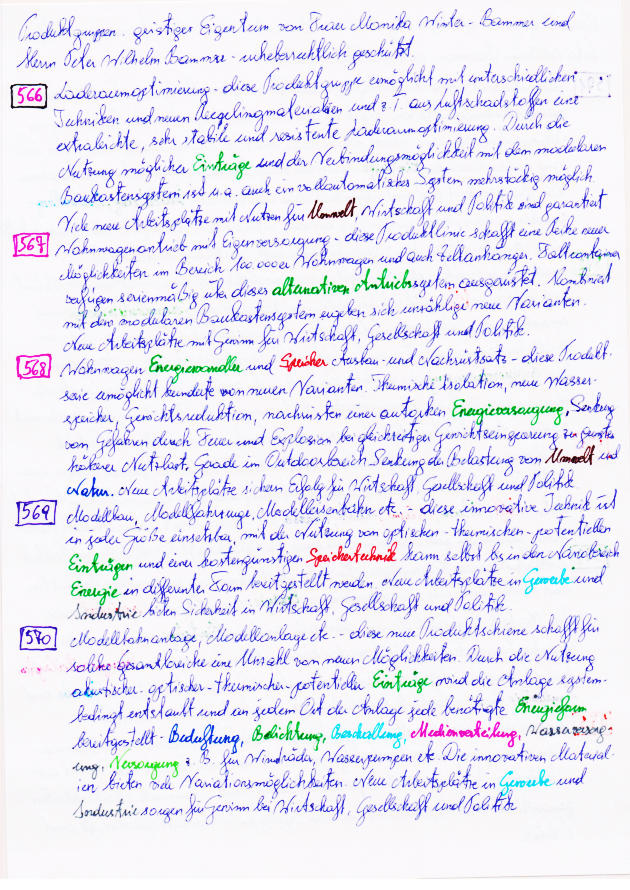 Produktgruppen. geistiges Eigentum von Frau Monika Winter-Bammer und
Herrn Peter Wilhelm Bammer - urheberrechtlich geschützt.
566 Laderaumoptimierung - diese Produktgruppe ermöglicht mit unterschiedlichen
Techniken und neuen Recyclingmaterialien und z.T. aus Luftschadstoffen eine
extraleichte, sehr stabile und resistente Laderaumoptimierung. Durch die
Nutzung möglicher Einträge und der Verbindungsmöglichkeit mit dem modularen
Baukastensystem ist u.a. auch ein vollautomatisches System, mehrstöckig möglich.
Viele neue Arbeitsplätze mit Nutzen für Umwelt, Wirtschaft und Politik sind garantiert
567 Wohnwagenantrieb mit Eigenversorgung - diese Produktlinie schafft eine Reihe neuer
Möglichkeiten im Bereich 100.000er Wohnwagen und auch Zeltanhänger. Faltcontainer
verfügen serienmäßig über dieses alternativen Antriebssystem ausgerüstet. Kombiniert
mit dem modularen Baukastensystem ergeben sich unzählige neue Varianten.
Neue Arbeitsplätze mit Gewinn für Wirtschaft, Gesellschaft und Politik.
568 Wohnwagen Energiewandler und Speicher Ausbau- und Nachrüstsatz - diese Produkt-
serie ermöglicht hunderte von neuen Varianten. Thermische isolation, neue Wasser-
speicher, Gewichtsreduktion, nachrüsten einer autarken Energieversorgung, Senkung
von Gefahren durch Feuer und Explosion bei gleichzeitiger Gewichtseinsparung zu gunsten
höherer Nutzlast. Gerade im Outdoorbereich Senkung der Belastung von Umwelt und
Natur. Neue Arbeitsplätze sichern Erfolg für Wirtschaft, Gesellschaft und Politik
569 Modellbau, Modellfahrzeuge, Modelleisenbahn etc. - diese innovative Technik ist
in jeder Größe einsetzbar, mit der Nutzung von optischen-thermischen-potentiellen
Einträgen und einer kostengünstigen Speichertechnik kann selbst bis in den Nanobereich
Energie in differenter Form bereitgestellt werden. Neue Arbeitsplätze in Gewerbe und
Industrie bieten Sicherheit in Wirtschaft, Gesellschaft und Politik.
570 Modellbahnanlage, Modellanlage etc. - diese neue Produktschiene schafft für
solche gesamtbereiche eine Unzahl von neuen Möglichkeiten. Durch die Nutzung
akustischer-optischer-thermischer-potentieller Einträge wird die Anlage system-
bedingt entstaubt und an jedem Ort der Anlage jede benötigte Energieform
bereitgestellt - Beduftung, Belichtung, Beschallung, Medienverteilung, Wasserreinig-
ung, Versorgung z.B. für Windräder, Wasserpumpen etc. Die innovativen Material-
ien bieten viele Variationsmöglichkeiten. Neue Arbeitsplätze in Gewerbe und
Industrie sorgen für Gewinn bei Wirtschaft, Gesellschaft und Politik